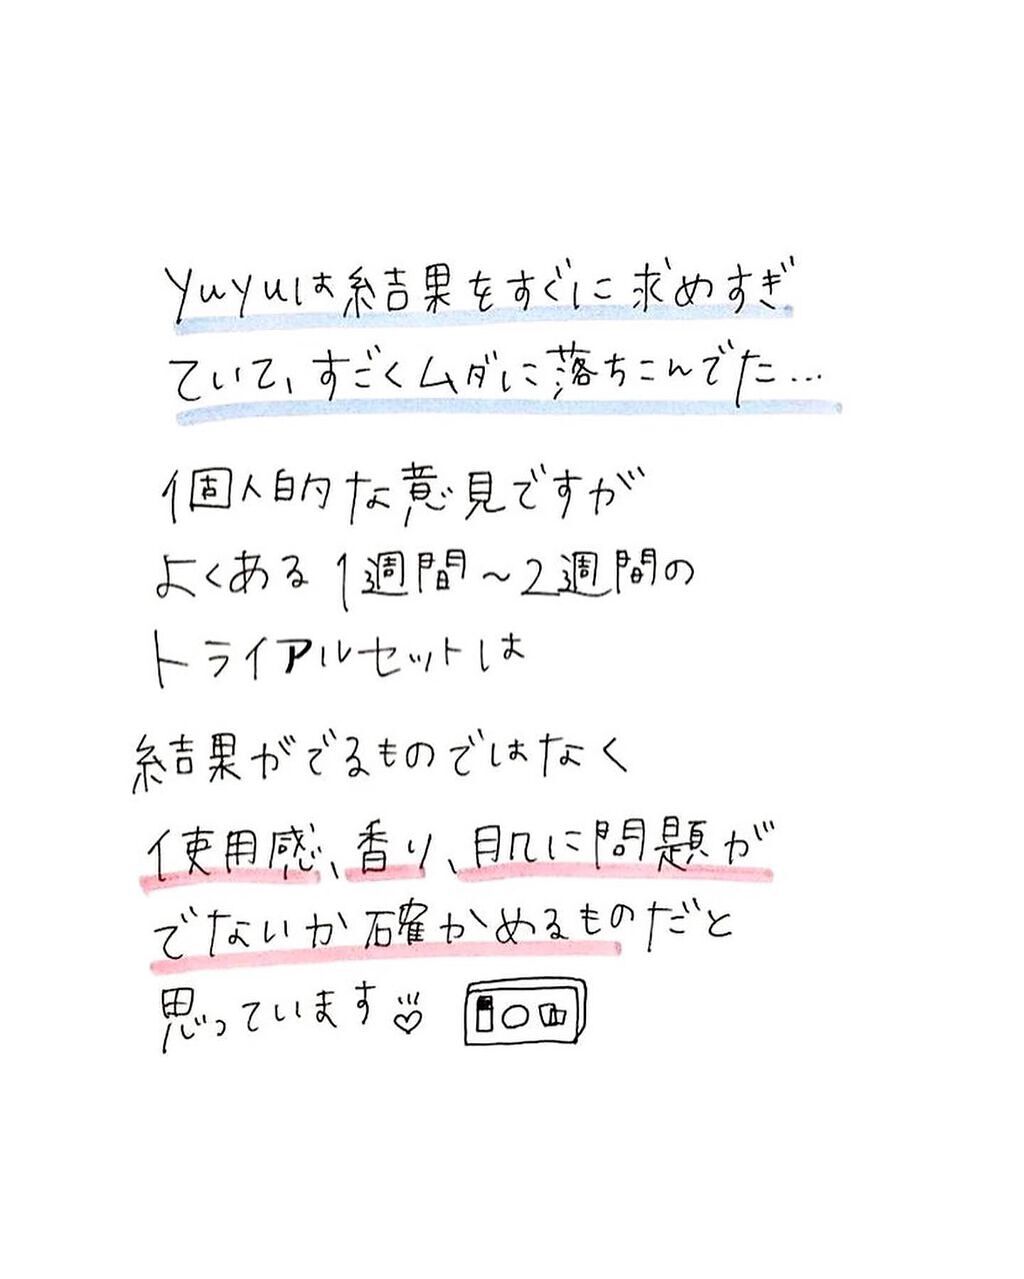 yuyuは結果をすぐに求めすぎ
ていて、すごくムダに落ちこんでた...
個人的な意見ですが
よくある1週間～2週間の
トライアルセットは
結果がでるものではなく
使用感、香り、肌に問題が
でないか確かめるものだと
思っています♡